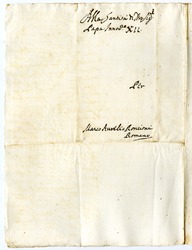 Alla Santità di N.ro Sig.re
Papa Innoc.o XII
Per
Marco Aurelio Ronconi
Romano